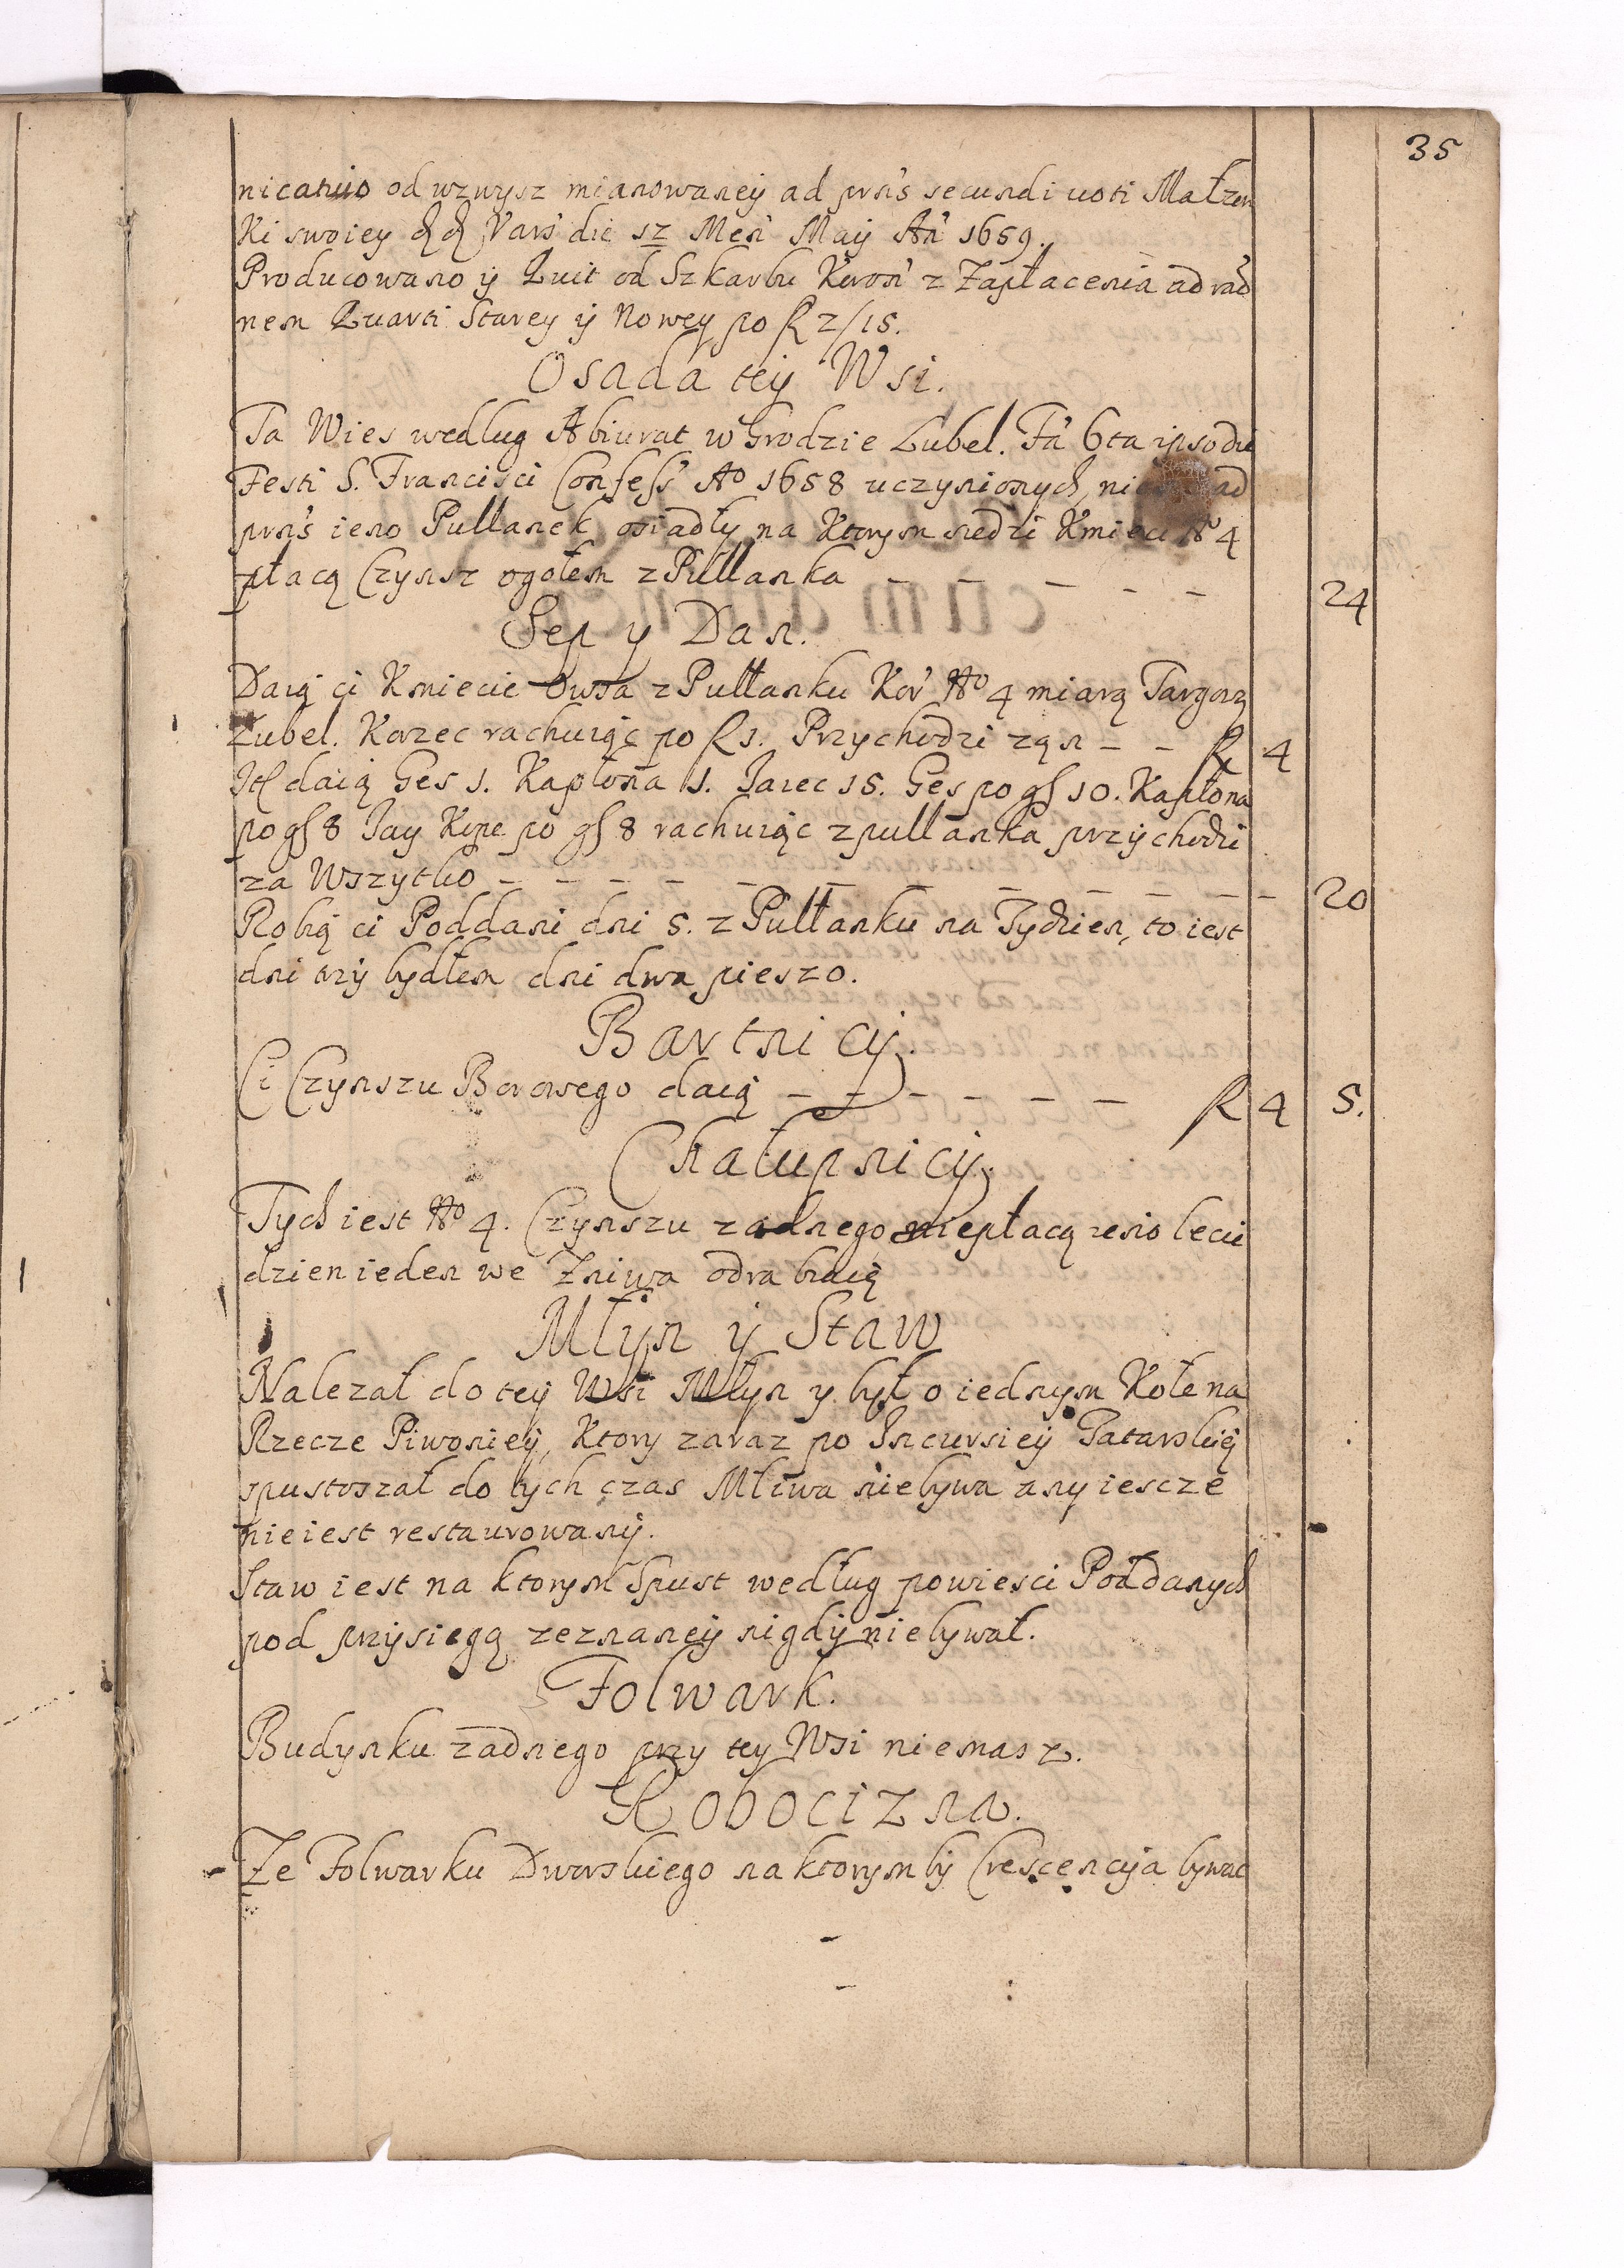 35
nicatum od wzwysz mianowaney ad prns secundi voti Małzon
Ki swoiey Vars die 12 Men Maij An 1659.
Producowano y Quit od Szkarbu Koron z Zapłacenia ad ratio
nem Quarti Starey y Nowey po fl 2/15.
Osada tey Wsi.
Ta Wies według Abiurat w Grodzie Lubel. Fa 6ta ipso die
Festi S. Francisci Confess Ao 1658 uczynionych, ad
prns ieno Pułłanek osiadły na Ktorym siedzi Kmieci No 4
płacą Czynsz ogołem z Pułłanka - - - - - 24
Sep y Dan.
Daią ci Kmiecie Owsa z Pułłanku Kor No 4 miarą Targową
Lubel. Korzec rachuiąc po fl 1. Przychodzi zań - - fl 4
It daią Ges 1. Kapłona 1. Jaiec 15. Ges po gs 10. Kapłona
po gs 8 Jay Kope po gs 8 rachuiąc z pułłanka przychodzi
za Wszytko - - - - - - - - - - - 20
Robią ci Poddani dni 5. z Pułłanku na Tydzien, to iest
dni trzy bydłem dni dwa pieszo.
Bartnicy.
Ci Czynszu Borowego daią - - - - - - fl 4 5.
Chałupnicy.
Tych iest No 4. Czynszu zadnego niepłacą ieno lecie
dzien ieden we Zniwa odrabiaią
Młyn y Staw
Nalezał do tey Wsi Młyn y był o iednym Kole na
Rzecze Piwoniey, Ktory zaraz po Incursiey Tatarskiey
spustoszał do tych czas Mliwa niebywa any iescze
nieiest restaurowany.
Staw iest na ktorym Spust według powiesci Poddanych
pod przysięgą zeznaney nigdy niebywał.
Folwark.
Budynku zadnego przy tey Wsi niemasz.
Robocizna.
Ze Folwarku Dworskiego na ktorymby Crescencyja bywac